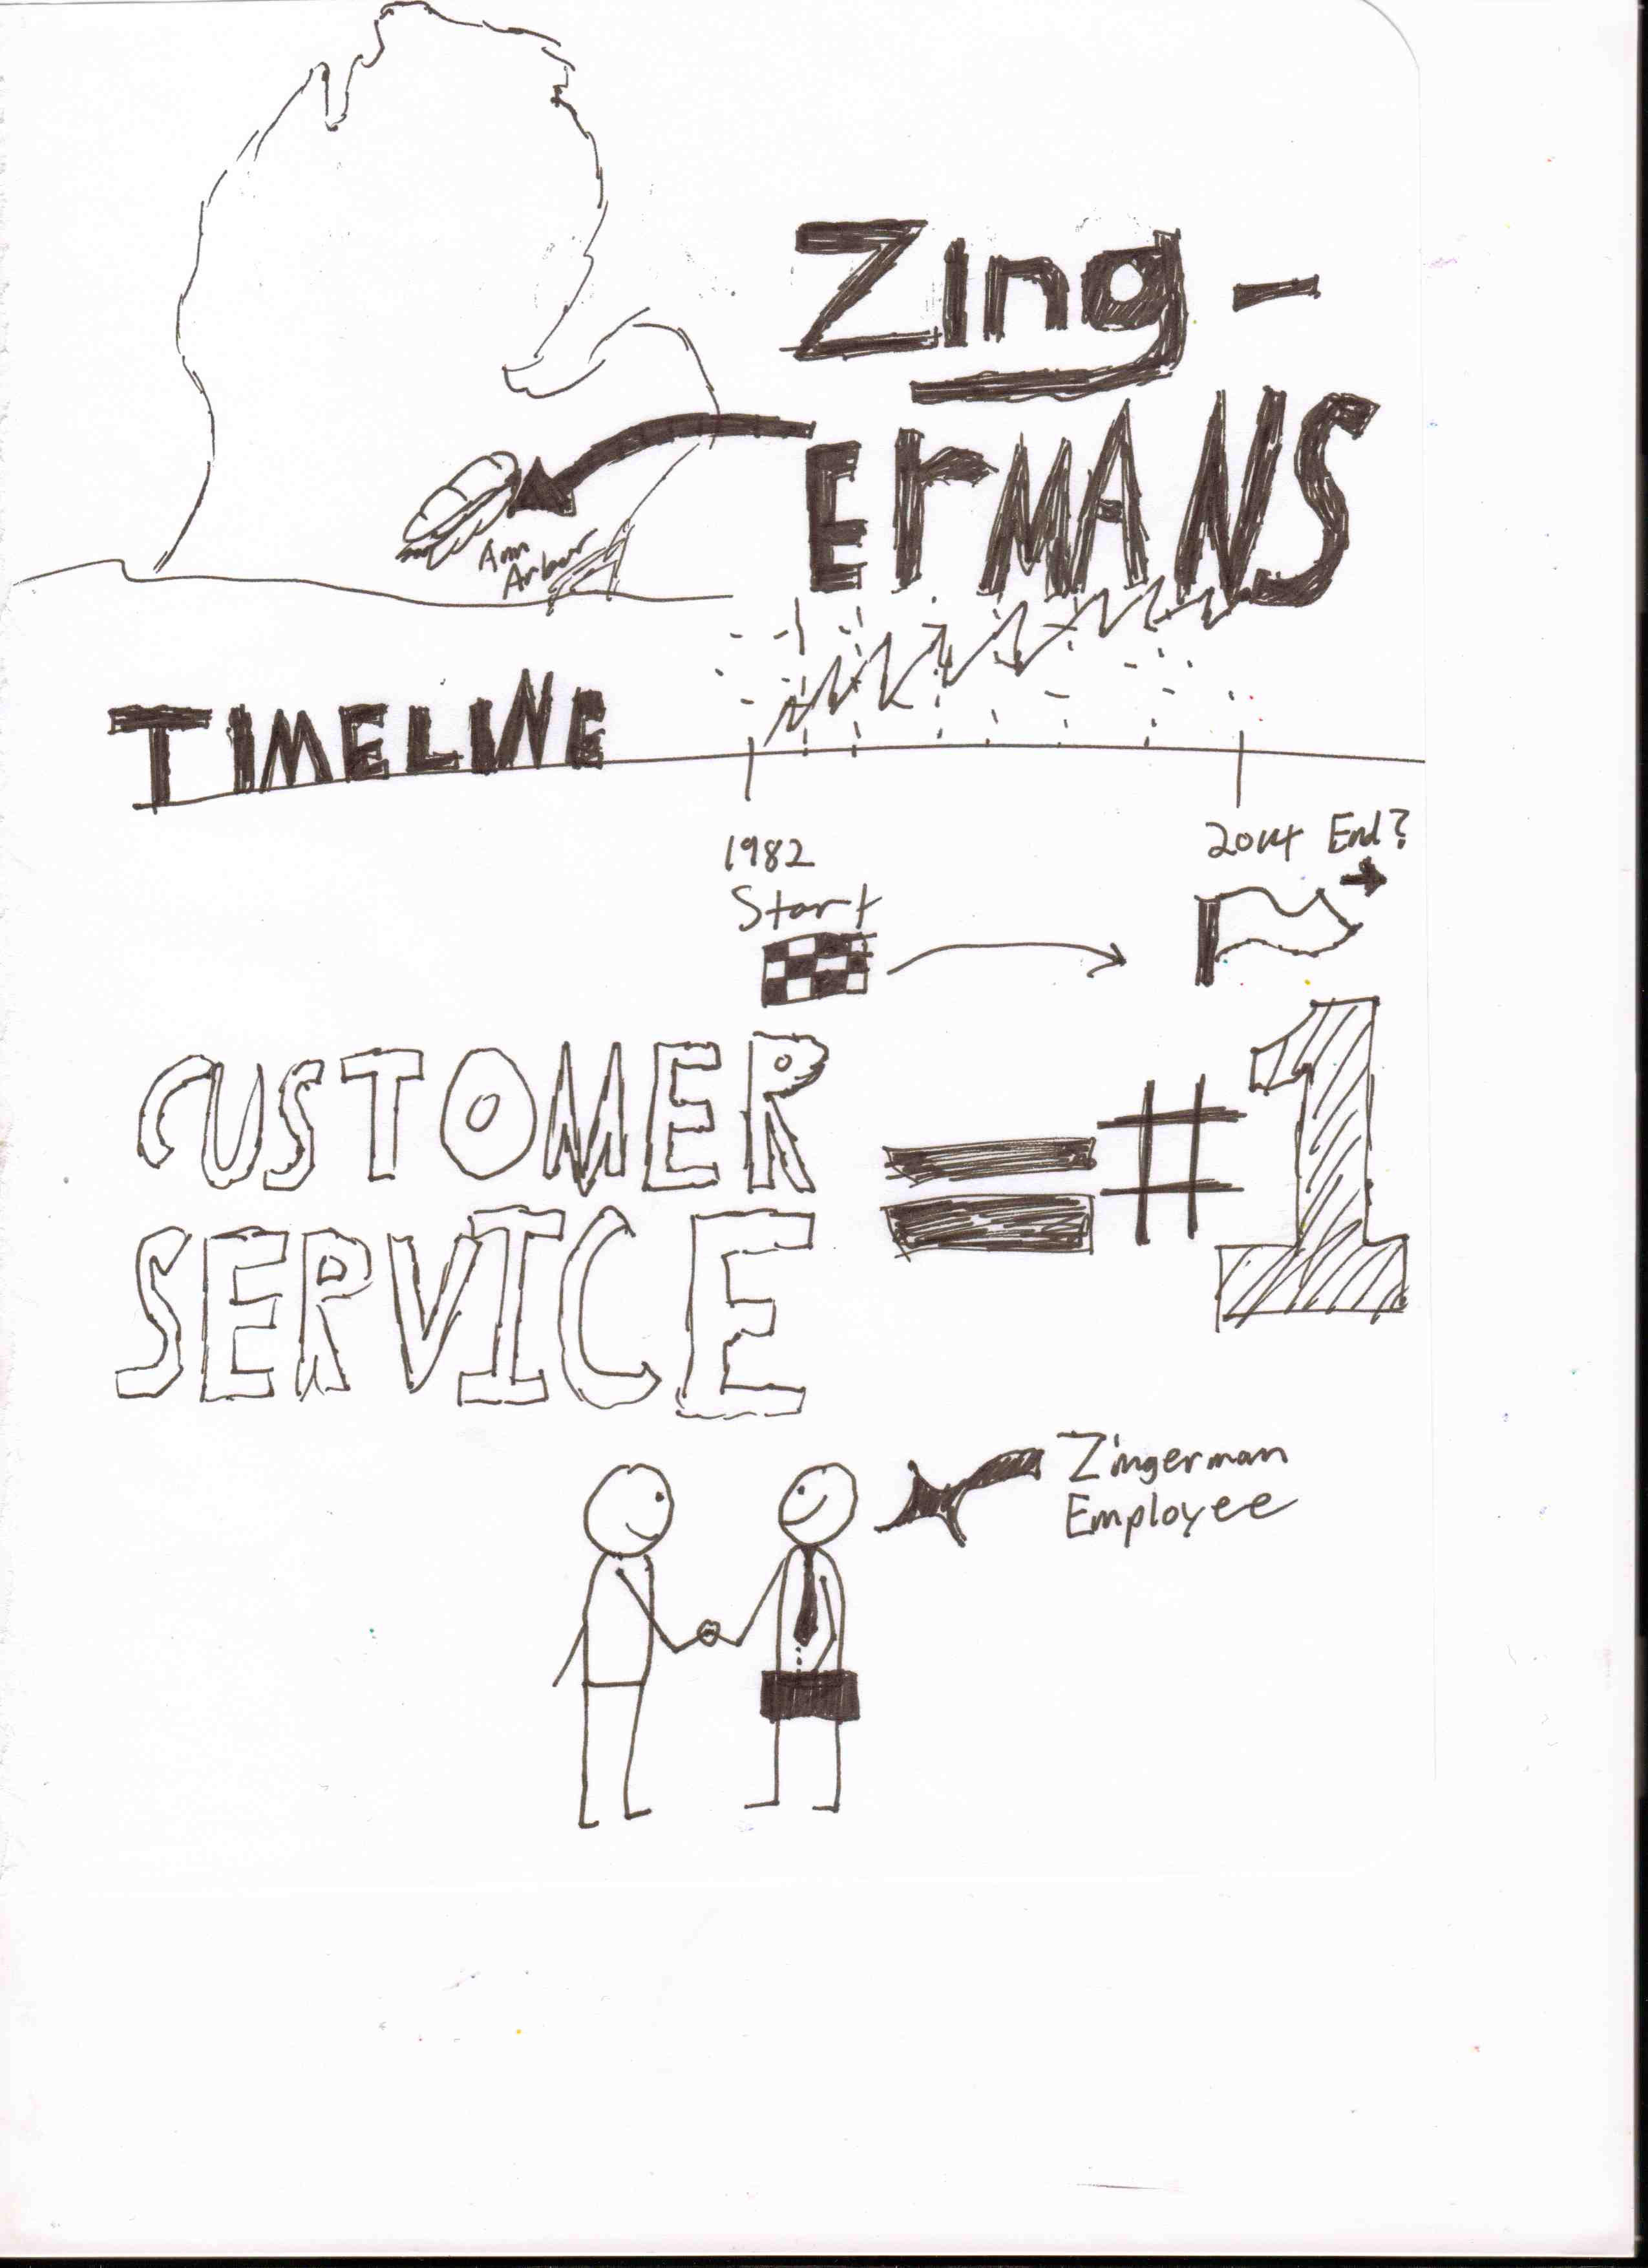 Zing-
ErMANS
Ann
Arbor
TIMELINE
1982
Start
2014 End?
CUSTOMER
SERVICE
= #1
Zingerman
Employee